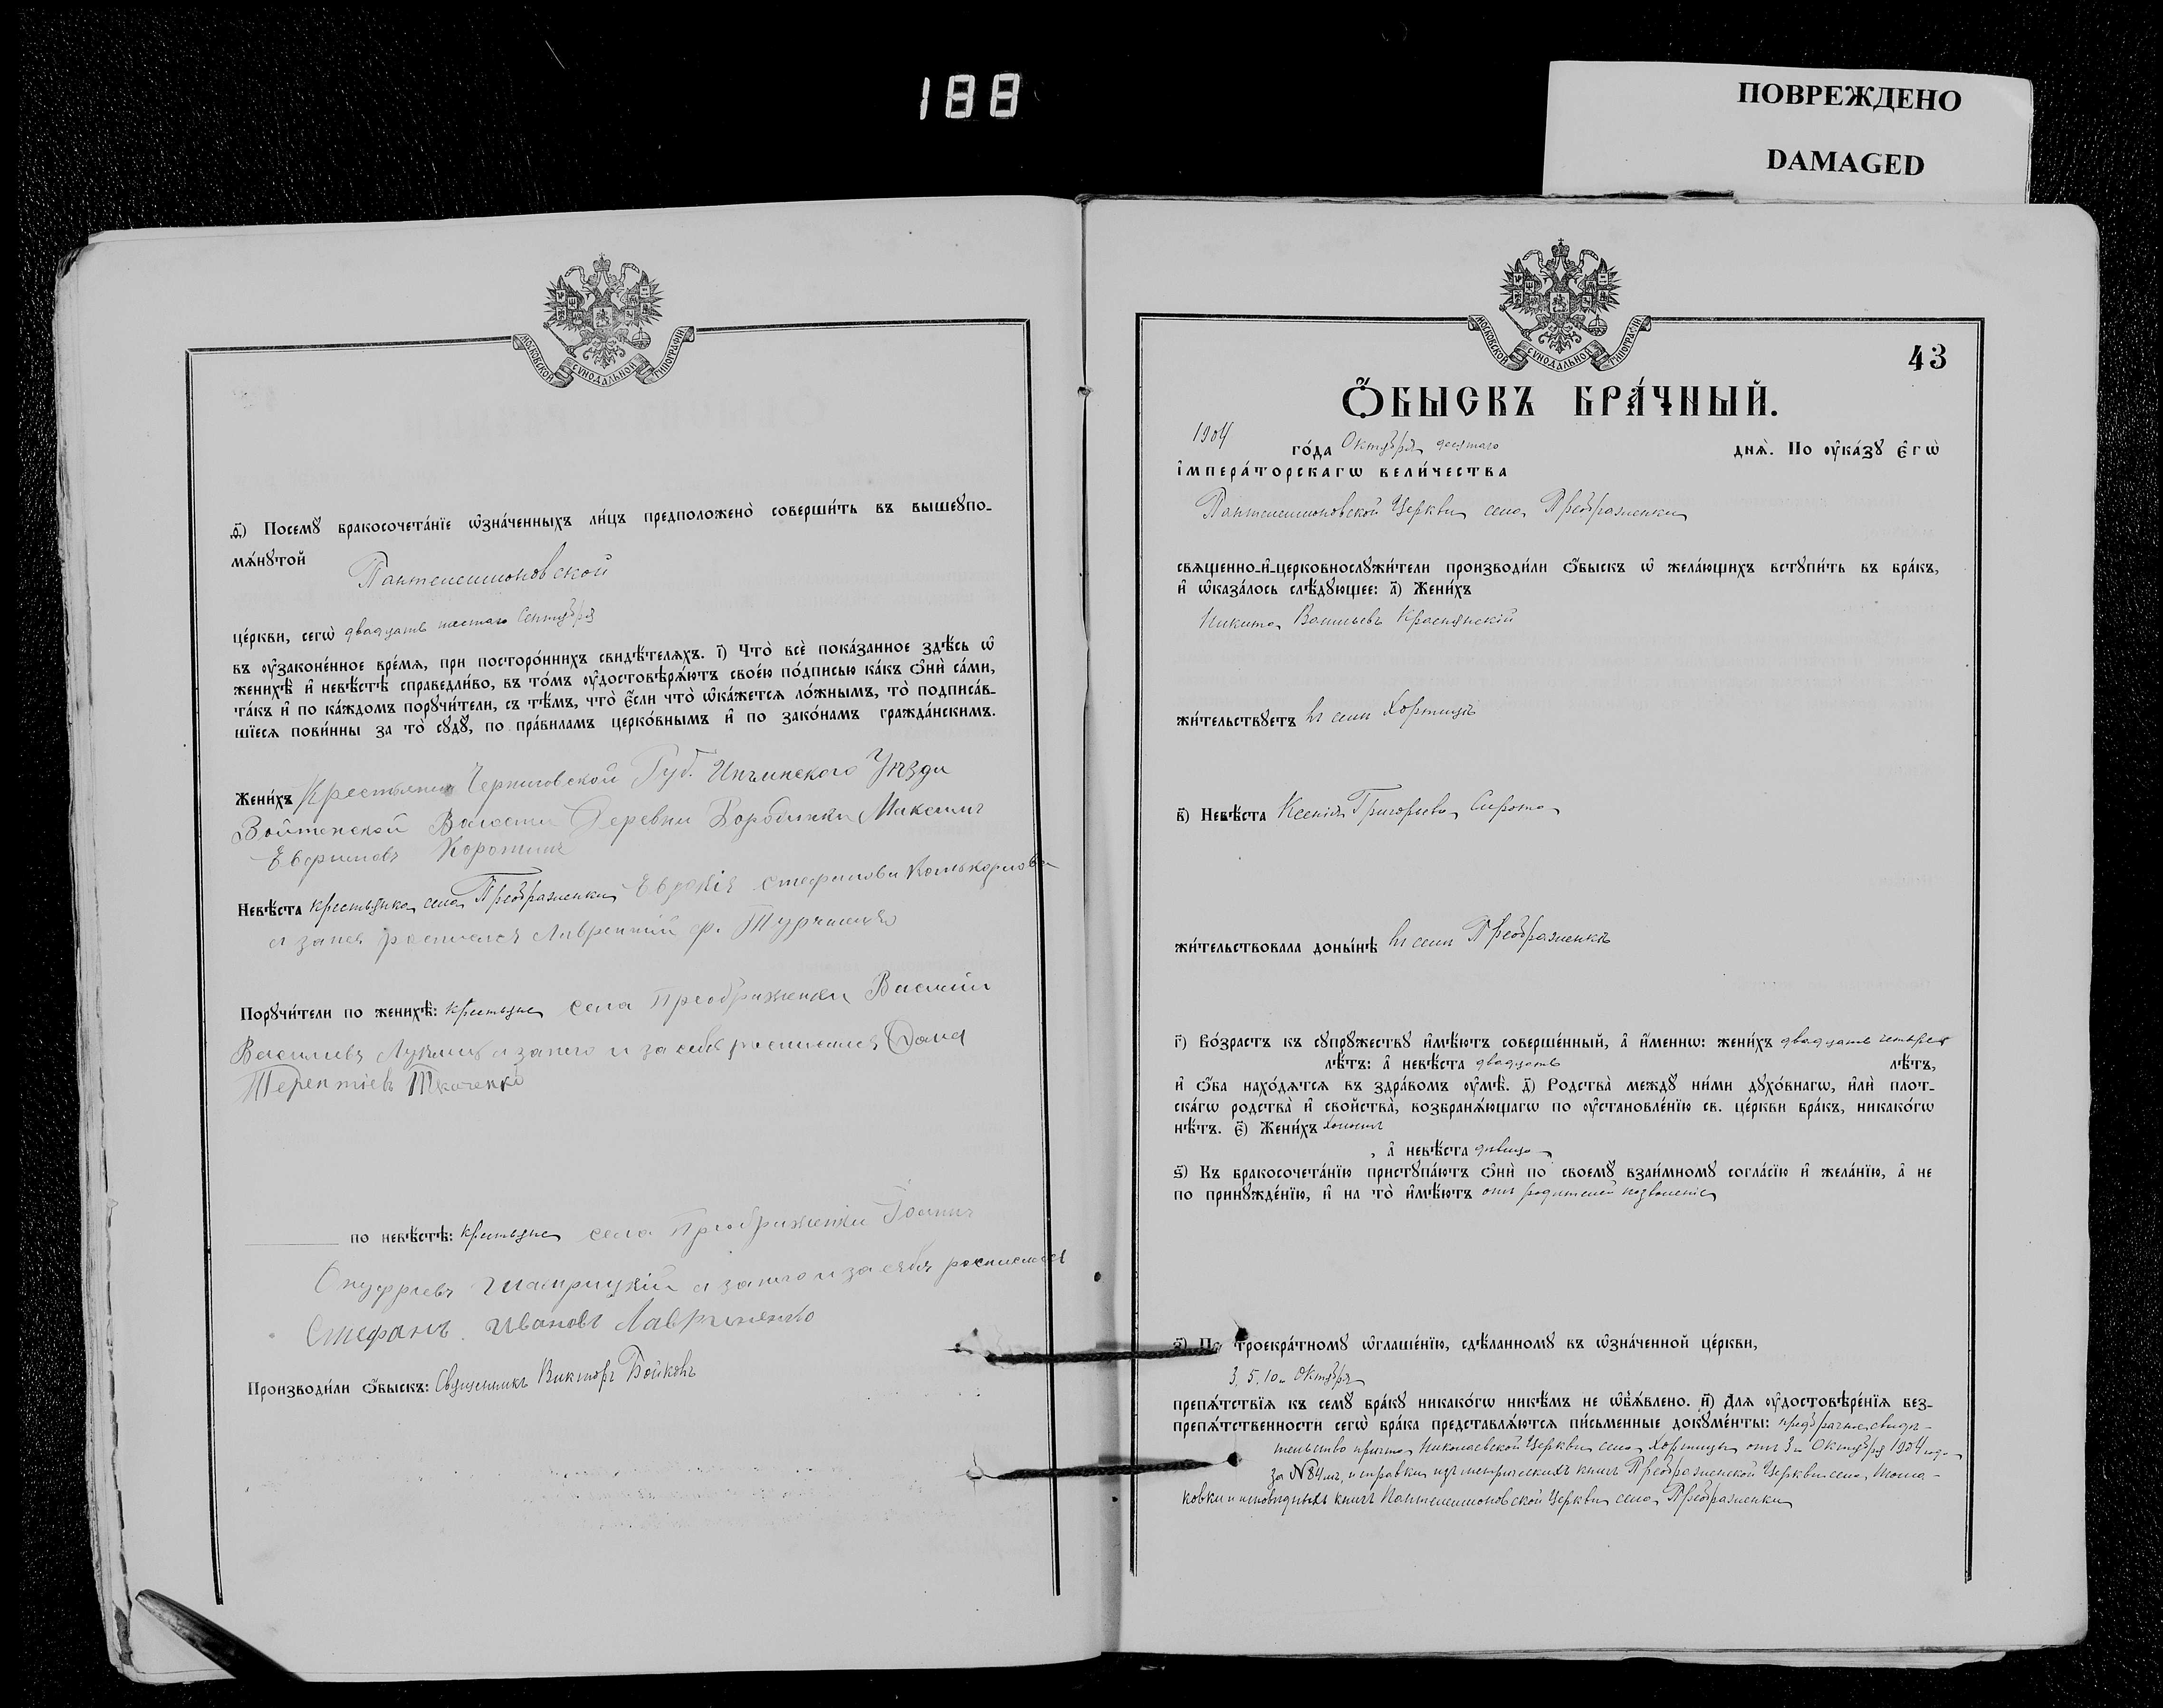 188
ПОВРЕЖДЕНО
DAMAGED
МОСКОВСКОЙ СѴНОДАЛЬНОЙ ТИПОГРАФІИ
д҃) Посемꙋ̀ бракосочета́нїе ѡ҆зна́ченныхъ ли́цъ предположено̀ соверши́ть въ вышеꙋпо-
мѧ́нꙋтой
Пантелеимоновской
це́ркви, сегѡ̀ двадцать шестаго Сентября
въ оу҆законе́нное вре́мѧ, при посторо́ннихъ свидѣ́телѧхъ. і҃) Что̀ всѐ пока́занное здѣ́сь ѡ҆
женихѣ̀ и҆ невѣ́стѣ справедли́во, въ то́мъ оу҆достовѣрѧ́ютъ свое́ю по́дписью ка́къ ѻ҆нѝ са́ми,
та́къ и҆ по ка́ждомъ порꙋчи́тели, съ тѣ́мъ, что̀ є҆́сли что̀ ѡ҆ка́жетсѧ ло́жнымъ, то̀ подписа́в-
шїесѧ пови́нны за то̀ сꙋдꙋ̀, по пра́виламъ церко́внымъ и҆ по зако́намъ гражда́нскимъ.
Жени́хъ Крестьянин Черниговской Губ. Уезда
Волости Деревни Максим
Евфимовъ
Невѣ́ста крестьянка села Преображенки Евдокія Стефанова
а занея росписался Лаврентий ф.
Порꙋчи́тели по женихѣ̀: крестьяне села Преображенки Василий
Василиевъ а занего и за себя росписался Данил
Терентіевъ Ткаченко
по невѣ́стѣ: крестьяне села Преображенки Іоанн
Онуфріевъ а занего и за себя росписался
Стефанъ Ивановъ Лавриненко
Производи́ли ѻ҆́быскъ: Священникъ Викторъ Бойковъ
МОСКОВСКОЙ СѴНОДАЛЬНОЙ ТИПОГРАФІИ
43
Ѻ҆́БЫСКЪ БРА́ЧНЫЙ.
1904 го́да Октября десятаго днѧ̀. По оу҆ка́зꙋ є҆гѡ̀
і҆мпера́торскагѡ вели́чества
Пантелеимоновской Церкви села Преображенки
свѧщенно-и҆-церковнослꙋжи́тели производи́ли ѻ҆́быскъ ѡ҆ жела́ющихъ встꙋпи́ть въ бра́къ,
и҆ ѡ҆каза́лось слѣ́дꙋющее: а҃) Жени́хъ
Никита Васильевъ Краснянскій
жи́тельствꙋетъ въ селѣ Хортицѣ
в҃) Невѣ́ста Ксенія Григорьева Сирота
жи́тельствовала доны́нѣ въ селѣ Преображенкѣ
г҃) Во́зрастъ къ сꙋпрꙋ́жествꙋ и҆мѣ́ютъ соверше́нный, а҆ и҆́меннѡ: жени́хъ двадцать четыре
лѣ́тъ: а҆ невѣ́ста двадцать лѣ́тъ,
и҆ ѻ҆́ба нахо́дѧтсѧ въ здра́вомъ оу҆мѣ̀. д҃) Родства̀ междꙋ̀ ни́ми дꙋхо́внагѡ, и҆лѝ плот-
ска́гѡ родства̀ и҆ сво́йства̀, возбранѧ́ющагѡ по оу҆становле́нїю св. це́ркви бра́къ, никако́гѡ
нѣ́тъ. є҃) Жени́хъ холостъ
, а҆ невѣ́ста дѣвица
ѕ҃) Къ бракосочета́нїю пристꙋпа́ютъ ѻ҆нѝ по своемꙋ̀ взаи́мномꙋ согла́сїю и҆ жела́нїю, а҆ не
по принꙋжде́нїю, и҆ на то̀ и҆мѣ́ютъ отъ родителей позволеніе
з҃) По троекра́тномꙋ ѡ҆глаше́нїю, сдѣ́ланномꙋ въ ѡ҆зна́ченной це́ркви,
3, 5, 10ᵒ Октября
препѧ́тствїѧ къ семꙋ̀ бра́кꙋ никако́гѡ никѣ́мъ не ѡ҆б̾ѧ́влено. и҃) Длѧ оу҆достовѣре́нїѧ без-
препѧ́тственности сегѡ̀ бра́ка представлѧ́ютсѧ пи́сьменные докꙋме́нты: предбрачное свидѣ-
тельство причта Николаевской Церкви села Хортицы отъ 3ᵒ Октября 1904 года
за №84мъ, и справки изъ метрическихъ книгъ Преображенской Церкви села Тома-
ковки и исповѣдныхъ книгъ Пантелеимоновской Церкви села Преображенки